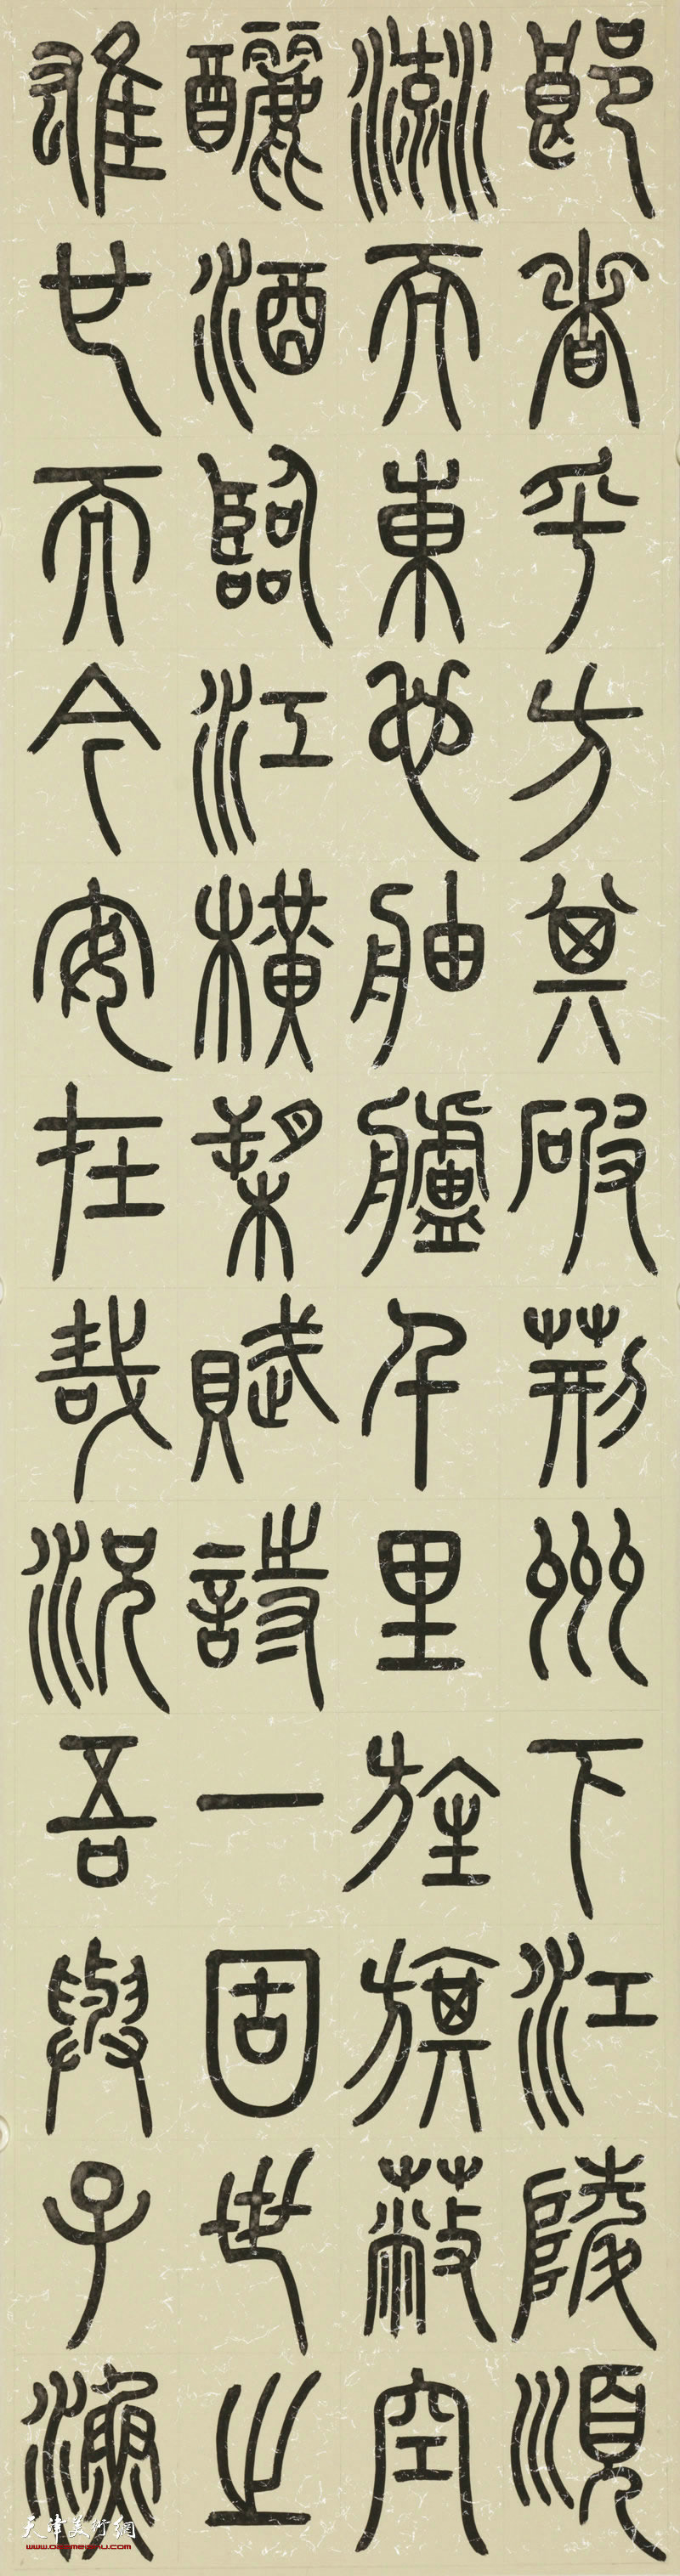 郎者乎方其破荊州下江陵順
流而東也舳艫千里旌旗蔽空
釃酒臨江橫槊賦詩一固世之
雄也而今安在哉況吾與子漁
天津美术網